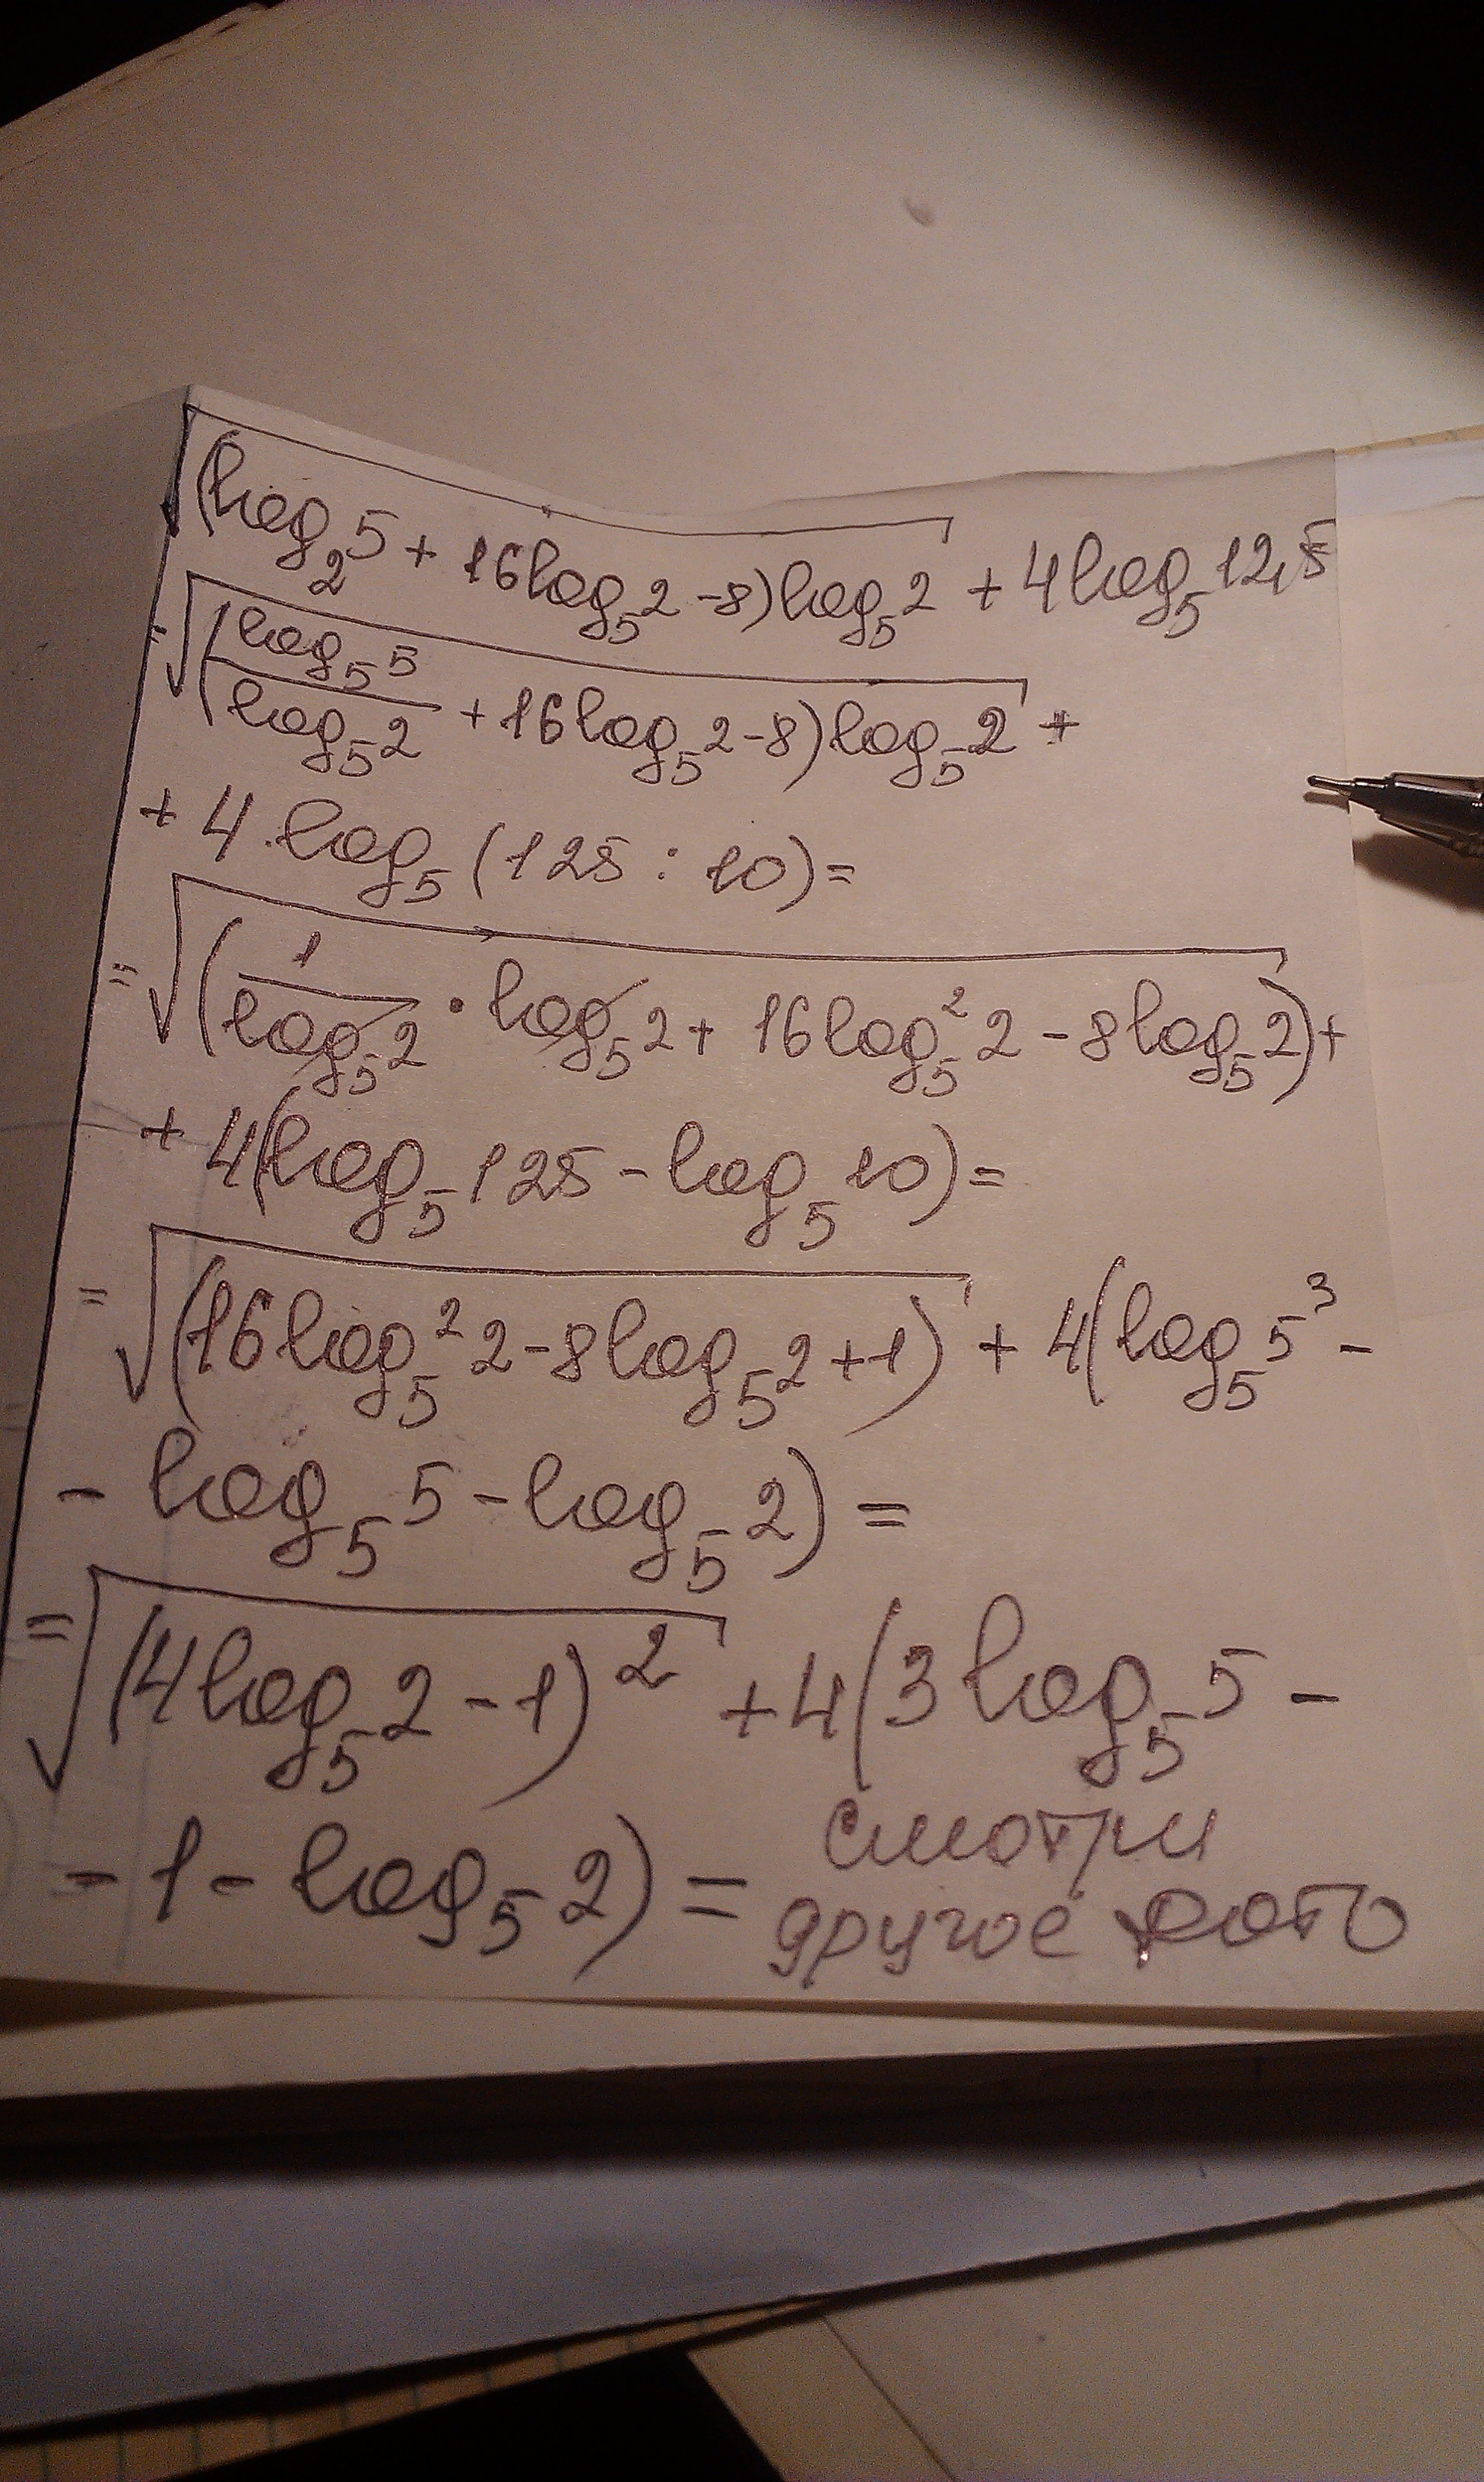 √((log₂5 + 16log₅2 - 8)log₅2) + 4log₅12,5
= √((log₅5/log₅2 + 16log₅2 - 8)log₅2) +
+ 4 · log₅(125 : 10) =
= √((1/log₅2 · log₅2 + 16log₅²2 - 8log₅2)) +
+ 4(log₅125 - log₅10) =
= √((16log₅²2 - 8log₅2 + 1)) + 4(log₅5³ -
- log₅5 - log₅2) =
= √((4log₅2 - 1)²) + 4(3log₅5 -
- 1 - log₅2) = смотри
другое фото